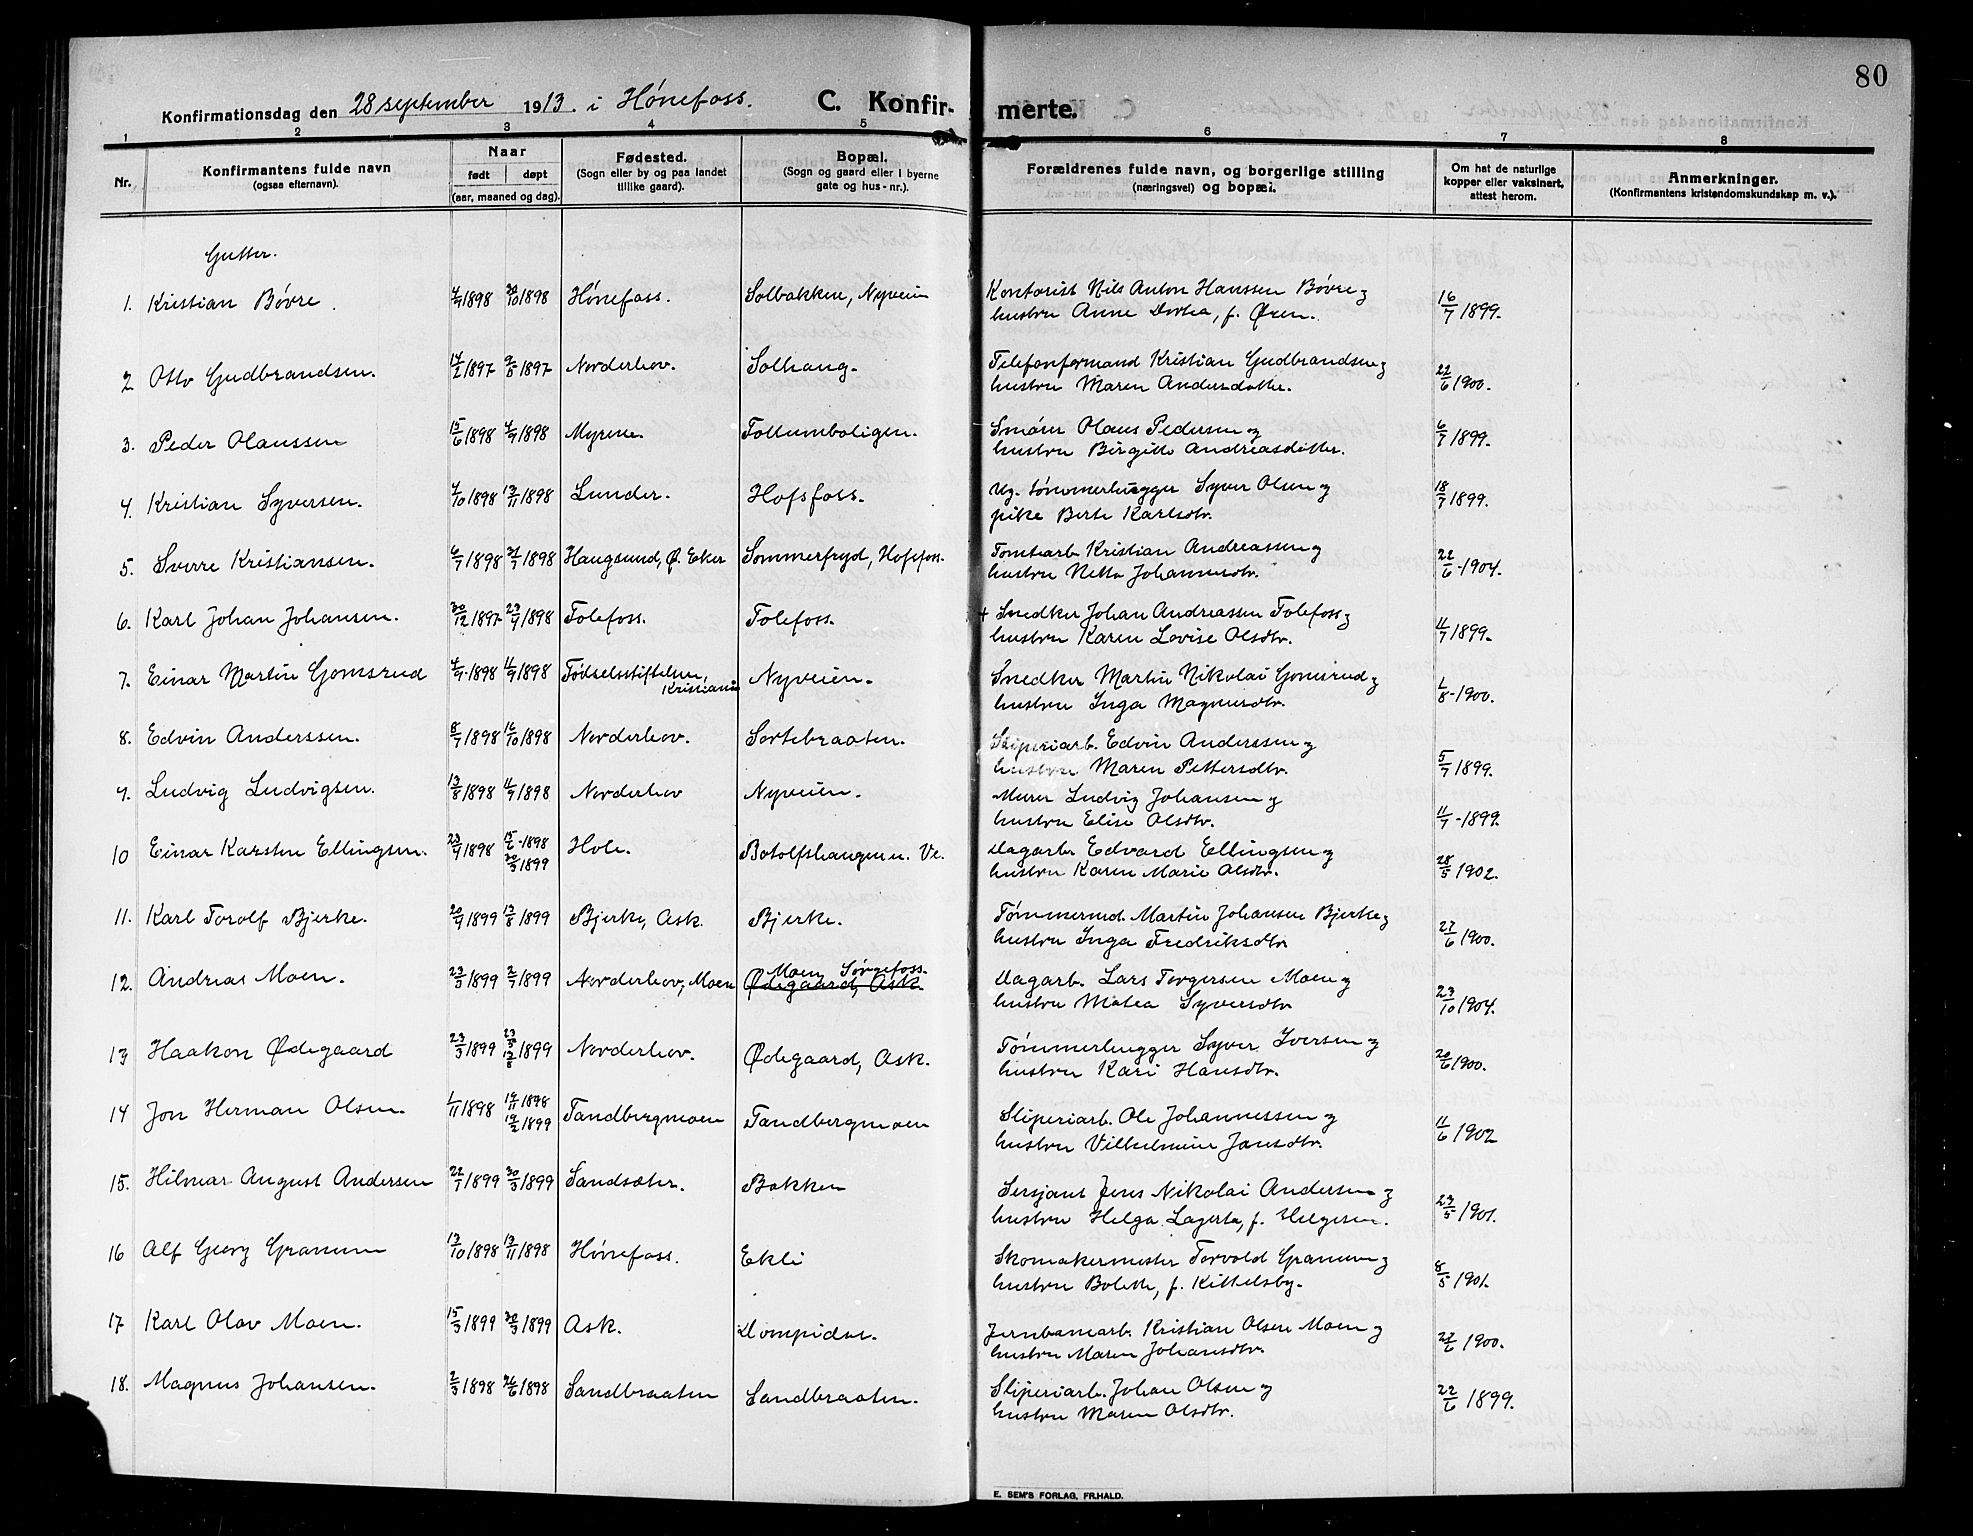 80
Konfirmationsdag den 28 september 1913. i Hønefoss. C. Konfirmerte.
1 2 3 4 5 6 7 8
Nr. Konfirmantens fulde navn (ogsaa efternavn). Naar født døpt (aar, maaned og dag). Fødested. (Sogn eller by og paa landet tillike gaard). Bopæl. (Sogn og gaard eller i byerne gate og hus-nr.). Forældrenes fulde navn, og borgerlige stilling (næringsvei) og bopæl. Om hat de naturlige kopper eller vaksinert, attest herom. Anmerkninger. (Konfirmantens kristendomskundskap m. v.).
Gutter.
1. Kristian Bøvre. 4/9 1898 30/10 1898 Hønefoss. Solbakken, Nyveien Kontorist Nils Anton Hanssen Bøvre og 16/7 1899.
hustru Anne Dortea, f. Øren.
2 Otto Gudbrandsen. 14/2 1897 9/5 1897 Norderhov. Solhaug. Telefonformand Kristian Gudbrandsen og 22/6 1900.
hustru Maren Andersdatter.
3. Peder Olaussen 15/6 1898 4/9 1898 Myrene. Follumboligen. Smører Olaus Pedersen og 6/7 1899.
hustru Birgitte Andreasdatter.
4. Kristian Syversen. 4/10 1898 13/11 1898 Lunder. Hofsfoss. Ug. tømmerhugger Syver Olsen og 18/7 1899.
pike Berte Karlsdtr.
5. Sverre Kristiansen. 6/7 1898 31/7 1898 Haugsund, Ø. Eker Sommerfryd, Hofsfoss. Tomtearb. Kristian Andreassen og 22/6 - 1904.
hustru Netta Johannesdtr.
6. Karl Johan Johansen. 30/12 1897 23/4 1898 Folefoss. Folefoss. + Snedker Johan Andreassen Folefoss og 11/7 1899.
hustru Karen Lovise Olsdtr.
7. Einar Martin Gomsrud 4/4 1898 11/9 1898 Fødselsstiftelsen, Kristiania Nyveien. Snedker Martin Nikolai Gomsrud og 1/8 - 1900.
hustru Inga Magnusdtr.
8. Edvin Anderssen. 8/7 1898 16/10 1898 Norderhov. Sortebraaten. Sliperiarb. Edvin Anderssen og
hustru Maren Pettersdtr. 5/7 1899.
9. Ludvig Ludvigsen. 13/8 1898 11/9 1898 Norderhov Nyveien. Murer Ludvig Johansen og
hustru Elise Olsdtr. 11/7 - 1899.
10 Einar Karsten Ellingsen. 23/4 1898 15/5 - 1898 30/3 1899 Hole. Botolfshaugen u. Ve. Dagarb. Edvard Ellingsen og 28/5 1902.
hustru Karen Marie Olsdtr.
11. Karl Torolf Bjerke. 20/4 1899 13/8 1899 Bjerke, Ask. Bjerke. Tømmermd. Martin Johansen Bjerke og 27/6 1900.
hustru Inga Fredriksdtr.
12. Andreas Moen. 23/3 1899 2/7 1899 Norderhov, Moen Moen, Sørgefoss. Ødegaard, Ask. Dagarb. Lars Torgersen Moen og
hustru Matea Syversdtr 23/10 1904.
13 Haakon Ødegaard 23/3 1899 23/3 13/8 1899 Norderhov. Ødegaard, Ask. Tømmerhugger Syver Iversen og 20/6 1900.
hustru Kari Hansdtr.
14 Jon Herman Olsen. 1/11 1898 19/11 1898 19/2 1899 Tandbergmoen Tandbergmoen Sliperiarb. Ole Johannessen og 11/6 1902
hustru Vilhelmine Jansdtr.
15. Hilmar August Andersen 22/1 1899 30/3 1899 Sandsæter. Bakken Sersjant Jens Nikolai Andersen og 23/5 1901.
hustru Helga Lagerta, f. Helgesen.
16 Alf Georg Granum 13/10 1898 13/11 1898 Hønefoss. Ekli Skomakermester Torvald Granum og 8/5 1901.
hustru Bolette, f. Kittelsby.
17 Karl Olav Moen. 15/3 1899 30/3 1899 Ask. Dompidsr. Jernbanearb. Kristian Olsen Moen og 22/6 1900.
hustru Maren Johansdtr.
18. Magnus Johansen. 2/3 1898 26/6 1898 Sandbraaten Sandbraaten. Sliperiarb. Johan Olsen og 22/6 1899.
hustru Maren Olsdtr.
E. SEM'S FORLAG, FR.HALD.